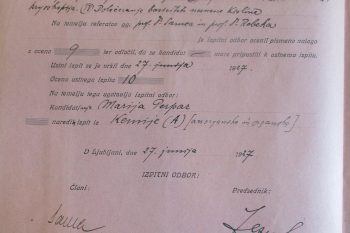 kryoskopija. (P. Določevanje
Na temelju referatov gg. prof. Dr. Samca in prof. Dr. Rebeka
je izpitni odbor ocenil pismeno nalogo
z oceno 9 ter odločil, da se kandidat more pripustiti k ustnemu izpitu.
Ustni izpit se je vršil dne 27. junija 1947
Ocena ustnega izpita 10
Na temelju tega ugotavlja izpitni odbor:
Kandidatinja Marija Perpar
naredi izpit iz Kemije (A) [anorganska in organska]
V Ljubljani, dne 27. junija 1947
IZPITNI ODBOR:
Člani: Predsednik:
Samec